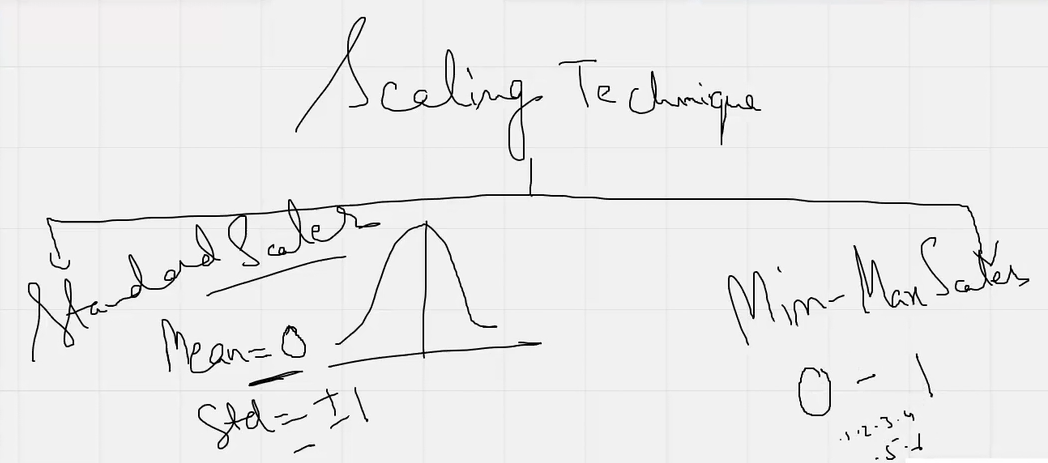 Scaling Technique
Standard Scaler
Mean = 0
Std = ±1
Min-Max Scaler
0 - 1
.1 .2 .3 .4
.5 .6